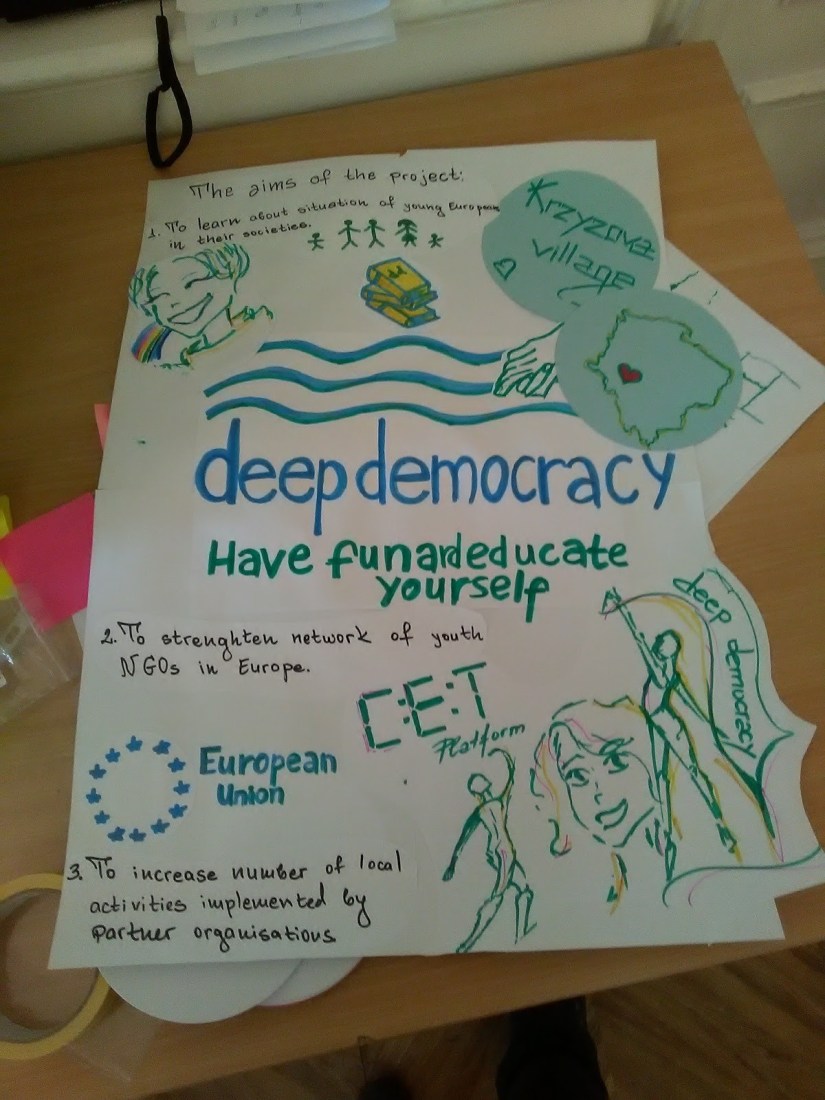 The aims of the project:
1. To learn about situation of young European
in their societies.
Krzyzova
village
deep democracy
Have fun and educate
yourself
2. To strenghten network of youth
NGOs in Europe.
C:E:T
Platform
deep democracy
European
Union
3. To increase number of local
activities implemented by
partner organisations